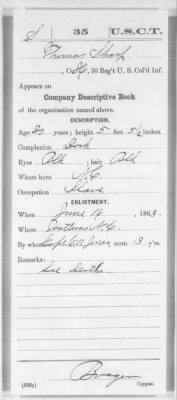 S 35 U.S.C.T.
Thomas Sharp
, Co. H, 35 Reg't U. S. Col'd Inf.
Appears on
Company Descriptive Book
of the organization named above.
DESCRIPTION.
Age years; height 5 feet 5½ inches
Complexion Dark
Eyes Blk; hair Blk
Where born N.C.
Occupation Slave
ENLISTMENT.
When June 16, 186
Where N.C.
By whom Capt. C. A. Jones; term 3 y'rs.
Remarks:
see deaths
(383g) Copyist.